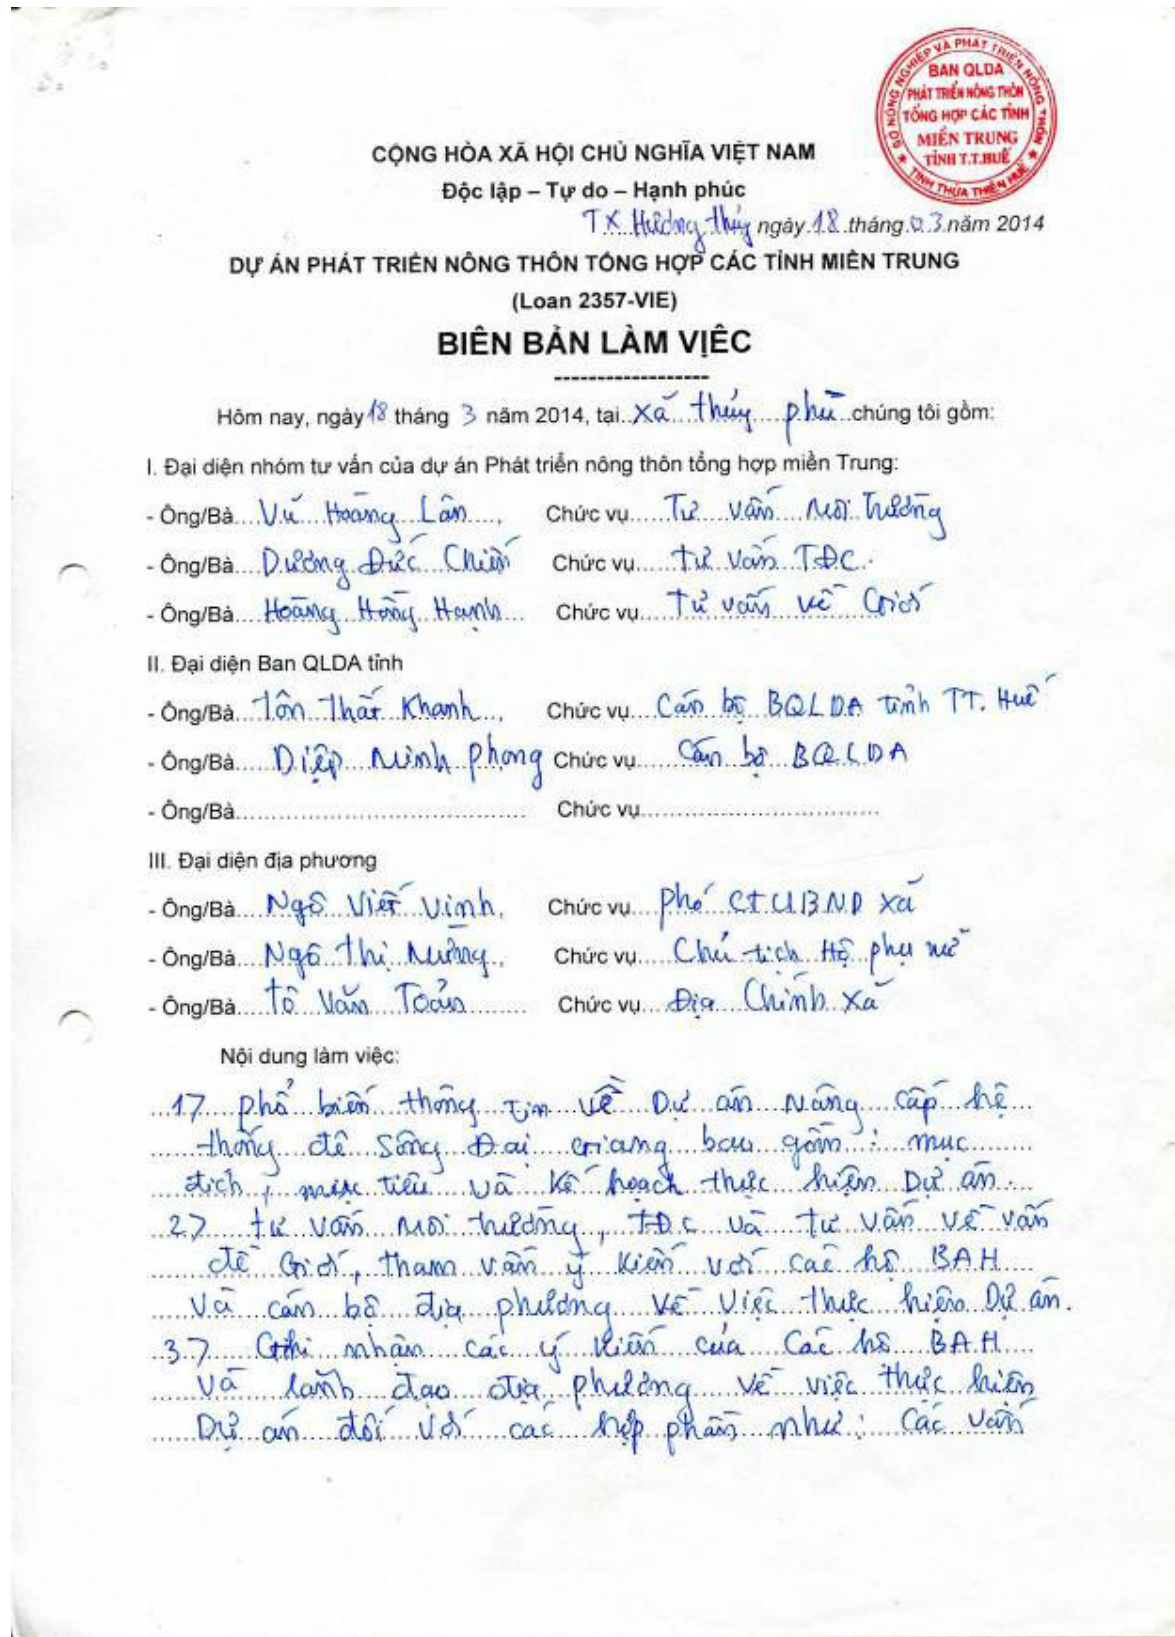 SỞ NÔNG NGHIỆP VÀ PHÁT TRIỂN NÔNG THÔN
BAN QLDA
PHÁT TRIỂN NÔNG THÔN
TỔNG HỢP CÁC TỈNH
MIỀN TRUNG
TỈNH T.T.HUẾ
TỈNH THỪA THIÊN HUẾ
CỘNG HÒA XÃ HỘI CHỦ NGHĨA VIỆT NAM
Độc lập – Tự do – Hạnh phúc
TX Hương thủy ngày 18 tháng 03 năm 2014
DỰ ÁN PHÁT TRIỂN NÔNG THÔN TỔNG HỢP CÁC TỈNH MIỀN TRUNG
(Loan 2357-VIE)
BIÊN BẢN LÀM VIỆC
------------------
Hôm nay, ngày 18 tháng 3 năm 2014, tại xã thủy phù chúng tôi gồm:
I. Đại diện nhóm tư vấn của dự án Phát triển nông thôn tổng hợp miền Trung:
- Ông/Bà Vũ Hoàng Lân Chức vụ Tư vấn Môi Trường
- Ông/Bà Dương Đức Chiến Chức vụ tư vấn TĐC.
- Ông/Bà Hoàng Hồng Hạnh Chức vụ Tư vấn về Giới
II. Đại diện Ban QLDA tỉnh
- Ông/Bà Tôn Thất Khanh Chức vụ Cán bộ BQLDA tỉnh TT. Huế
- Ông/Bà Diệp Minh Phong Chức vụ Cán bộ BQLDA
- Ông/Bà Chức vụ
III. Đại diện địa phương
- Ông/Bà Ngô Viết Vinh Chức vụ phó CT UBND xã
- Ông/Bà Ngô Thị Chức vụ Chủ tịch Hộ phụ nữ
- Ông/Bà Tô Văn Toản Chức vụ Địa Chính xã
Nội dung làm việc:
1> phổ biến thông tin về Dự án Nâng cấp hệ
thống đê Sông Đại Giang bao gồm: mục
đích, mục tiêu và Kế hoạch thực hiện Dự án.
2> tư vấn Môi trường, TĐC và tư vấn về vấn
đề Giới, tham vấn ý kiến với các hộ BAH
và cán bộ địa phương về việc thực hiện Dự án.
3> Ghi nhận các ý kiến của Các hộ BAH
và lãnh đạo địa phương về việc thực hiện
Dự án đối với các hợp phần như: Các vấn